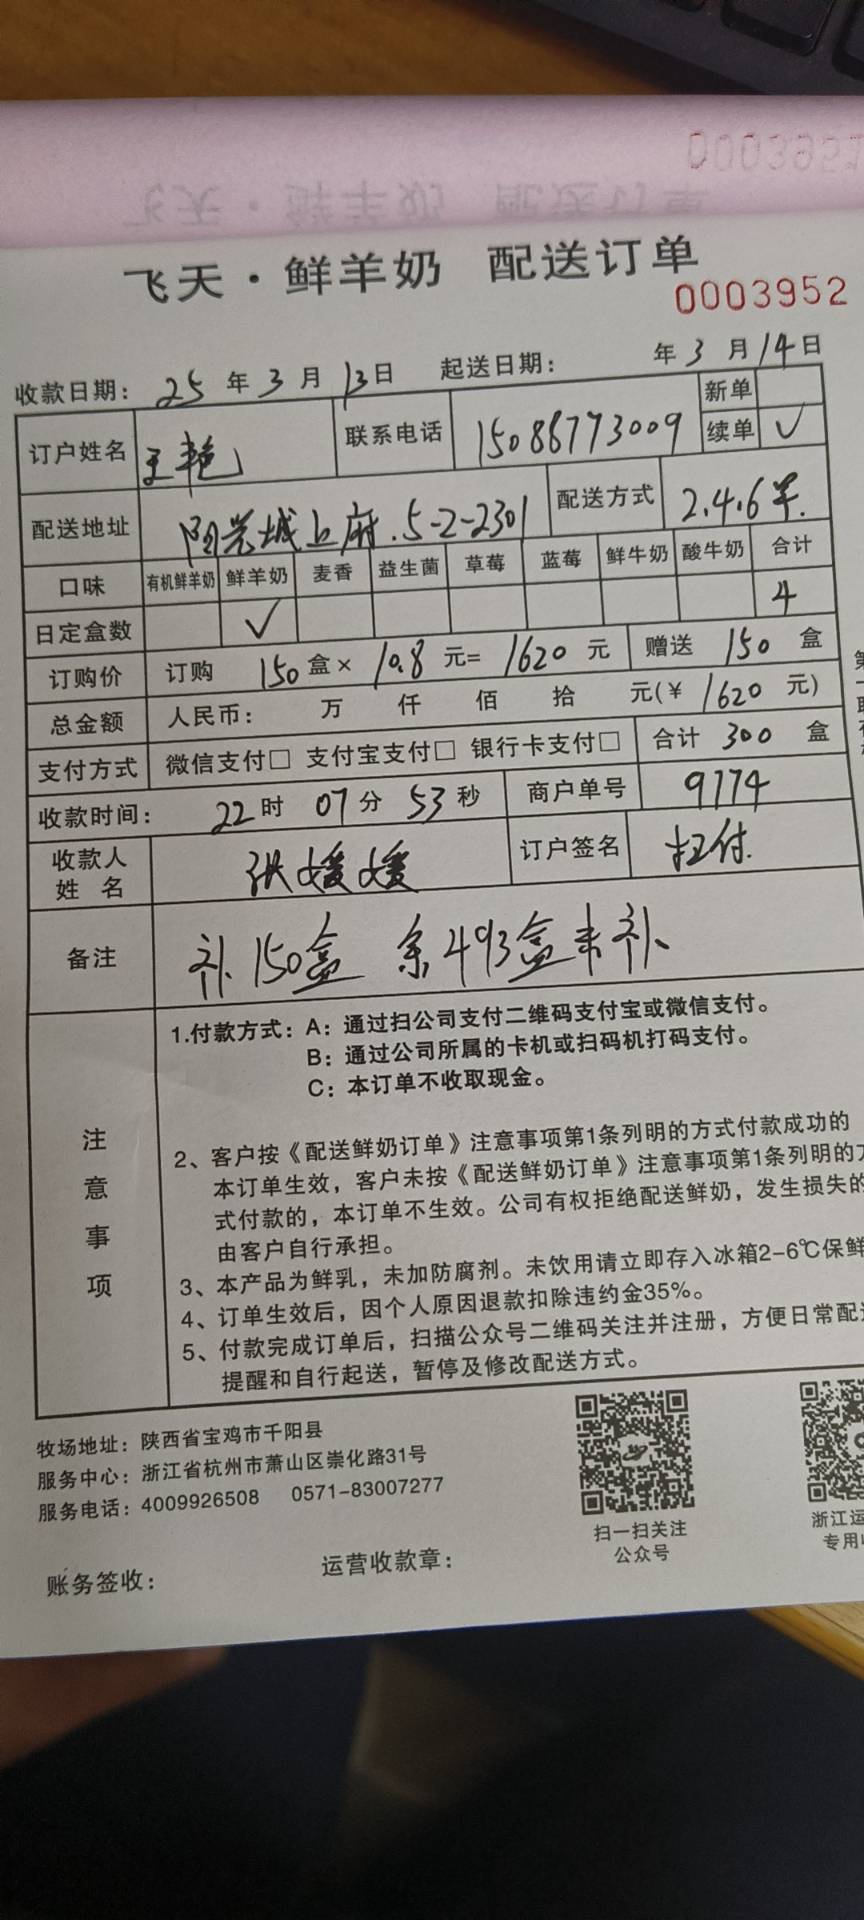 0003951
飞天·鲜羊奶 配送订单
飞天·鲜羊奶 配送订单
0003952
收款日期: 25 年 3 月 13 日 起送日期: 年 3 月 14 日
订户姓名 王艳 联系电话 15088773009 新单
续单 ✓
配送地址 阳光城上府.5-2-2301 配送方式 2.4.6早.
口味 有机鲜羊奶 鲜羊奶 麦香 益生菌 草莓 蓝莓 鲜牛奶 酸牛奶 合计
日定盒数 ✓ 4
订购价 订购 150 盒× 10.8 元= 1620 元 赠送 150 盒
总金额 人民币: 万 仟 佰 拾 元(¥ 1620 元)
支付方式 微信支付□ 支付宝支付□ 银行卡支付□ 合计 300 盒
收款时间: 22 时 07 分 53 秒 商户单号 9774
收款人姓名 张媛媛 订户签名 扫付.
备注 补150盒 余493盒未补
注意事项
1.付款方式: A: 通过扫公司支付二维码支付宝或微信支付。
B: 通过公司所属的卡机或扫码机打码支付。
C: 本订单不收取现金。
2、客户按《配送鲜奶订单》注意事项第1条列明的方式付款成功的
本订单生效，客户未按《配送鲜奶订单》注意事项第1条列明的方
式付款的，本订单不生效。公司有权拒绝配送鲜奶，发生损失的
由客户自行承担。
3、本产品为鲜乳，未加防腐剂。未饮用请立即存入冰箱2-6℃保鲜
4、订单生效后，因个人原因退款扣除违约金35%。
5、付款完成订单后，扫描公众号二维码关注并注册，方便日常配送
提醒和自行起送，暂停及修改配送方式。
牧场地址: 陕西省宝鸡市千阳县
服务中心: 浙江省杭州市萧山区崇化路31号
服务电话: 4009926508 0571-83007277
扫一扫关注
公众号
浙江运
专用收
账务签收: 运营收款章: